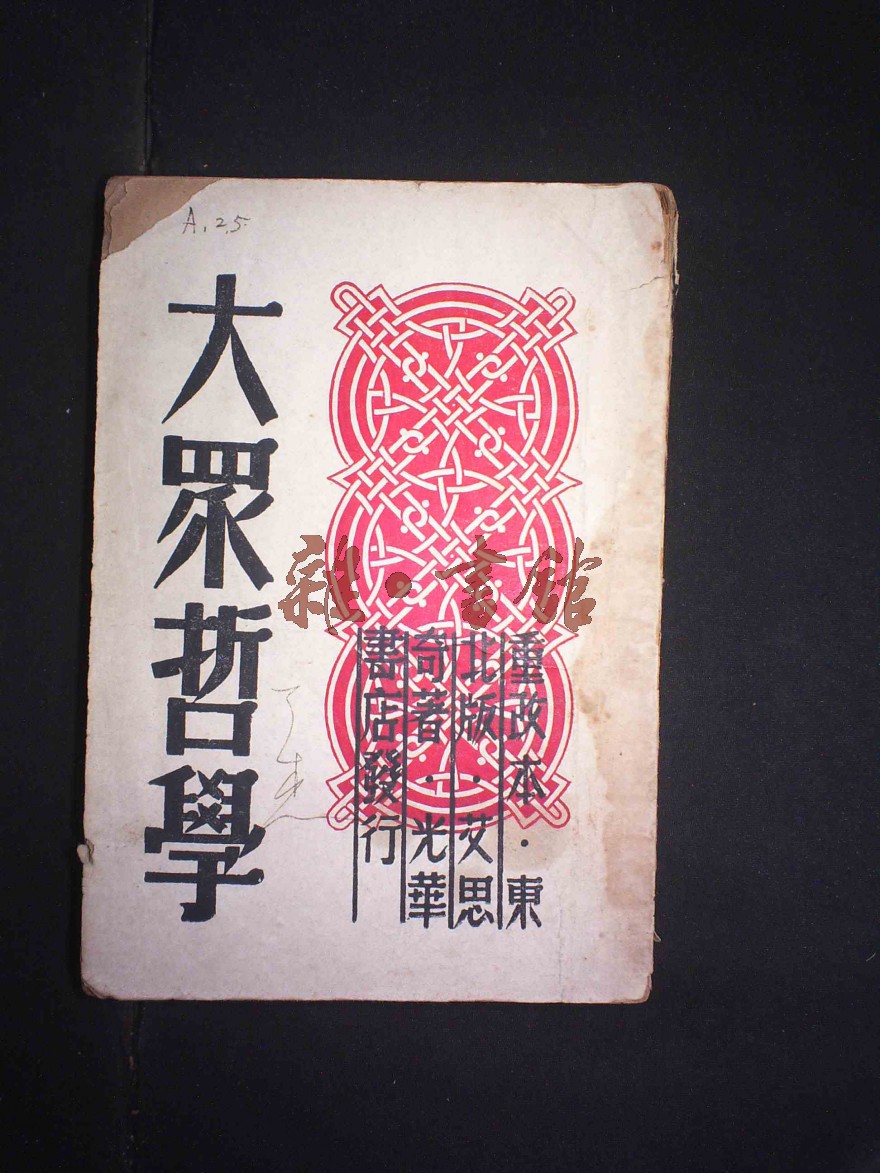 A.25
大眾哲學
重改本·東
北版·艾思
奇著·光華
書店發行
雜·書館